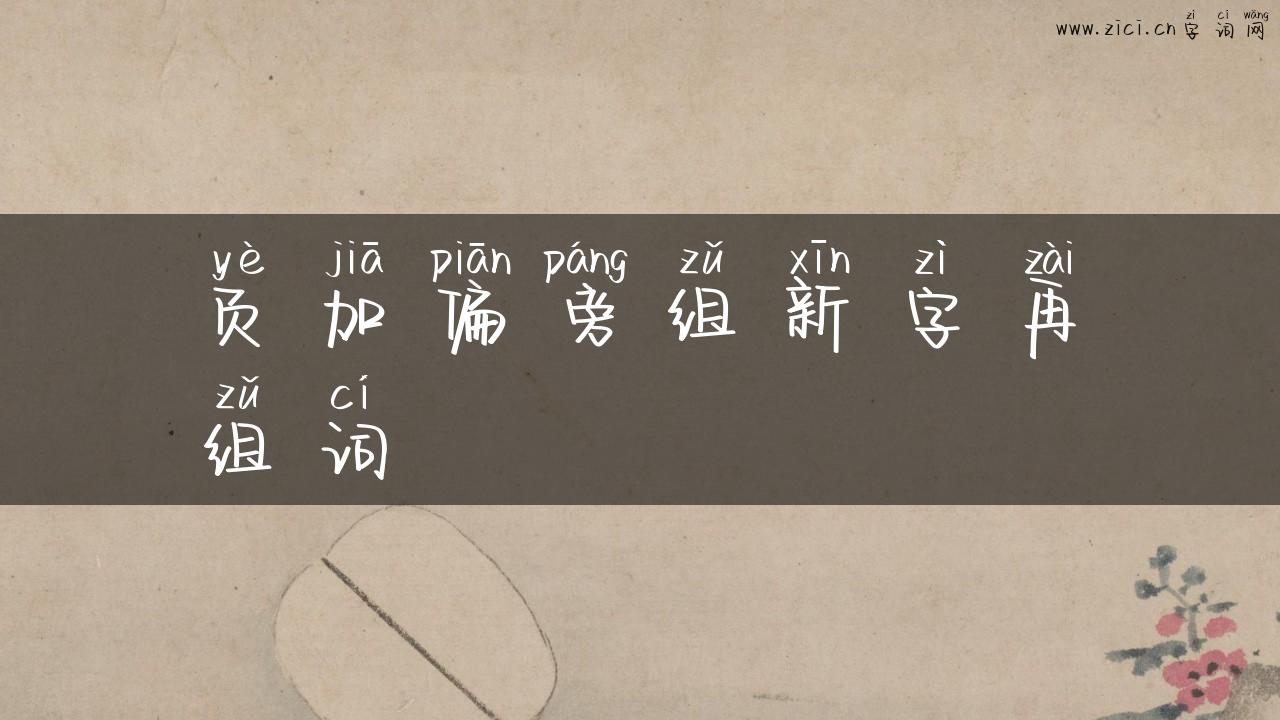 zì cí wǎng
www.zici.cn字词网
yè jiā piān páng zǔ xīn zì zài
页加偏旁组新字再
zǔ cí
组词